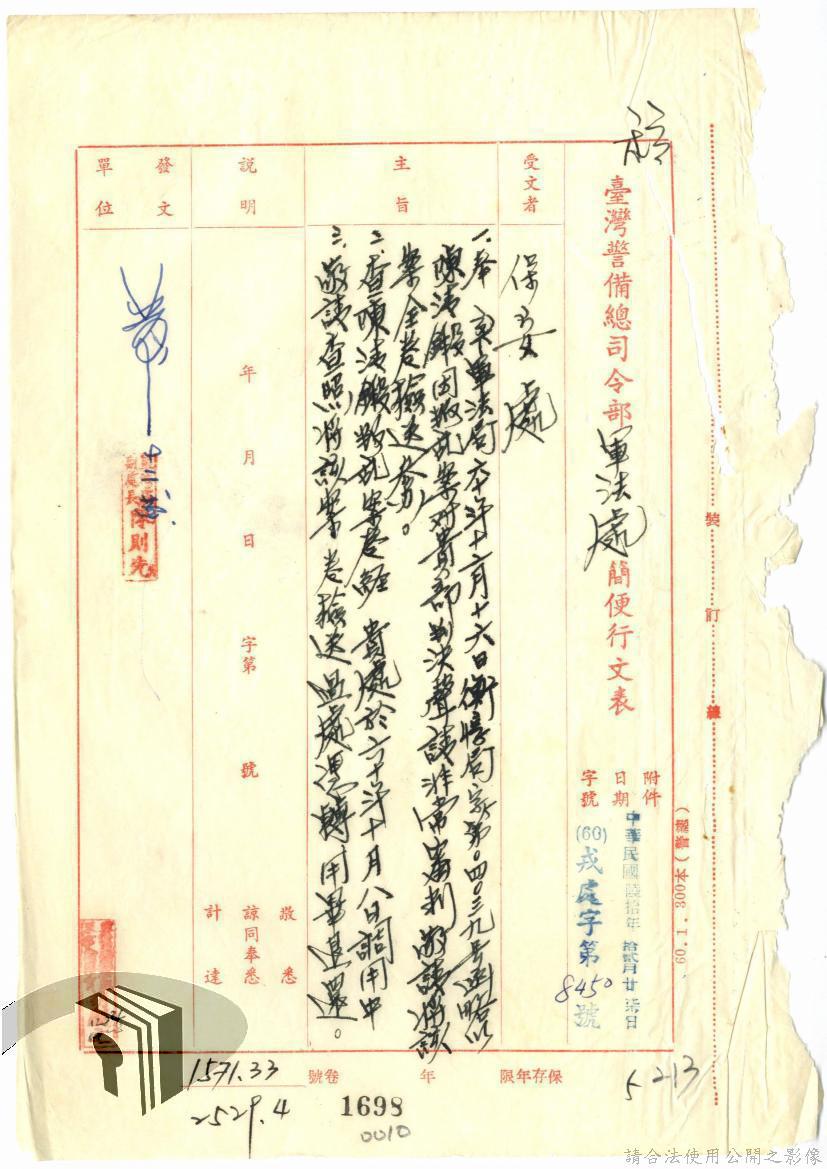 裝訂線
60.1.300本(普通)
臺灣警備總司令部軍法處簡便行文表
附件
日期 中華民國陸拾年拾貳月廿柒日
字號 (60)戎處字第8450號
受文者
保安處
主旨
一、奉 京軍法局本年十二月十六日衡 局 字第〇四〇三九号函略以
陳 因叛乱案对貴部判決聲請非常審判敬請將該
案全卷檢送 。
二、查陳 叛乱案卷經 貴處於六十年十月八日調用中
三、敬請查照將該案卷檢送過處 轉用畢退還。
說明
年 月 日 字第 號
敬悉
諒同奉悉
計達
發文單位
十二
副處長 陳則
保存年限 年 卷號
5213
1571.33
2529.4
1698
0010
請合法使用公開之影像